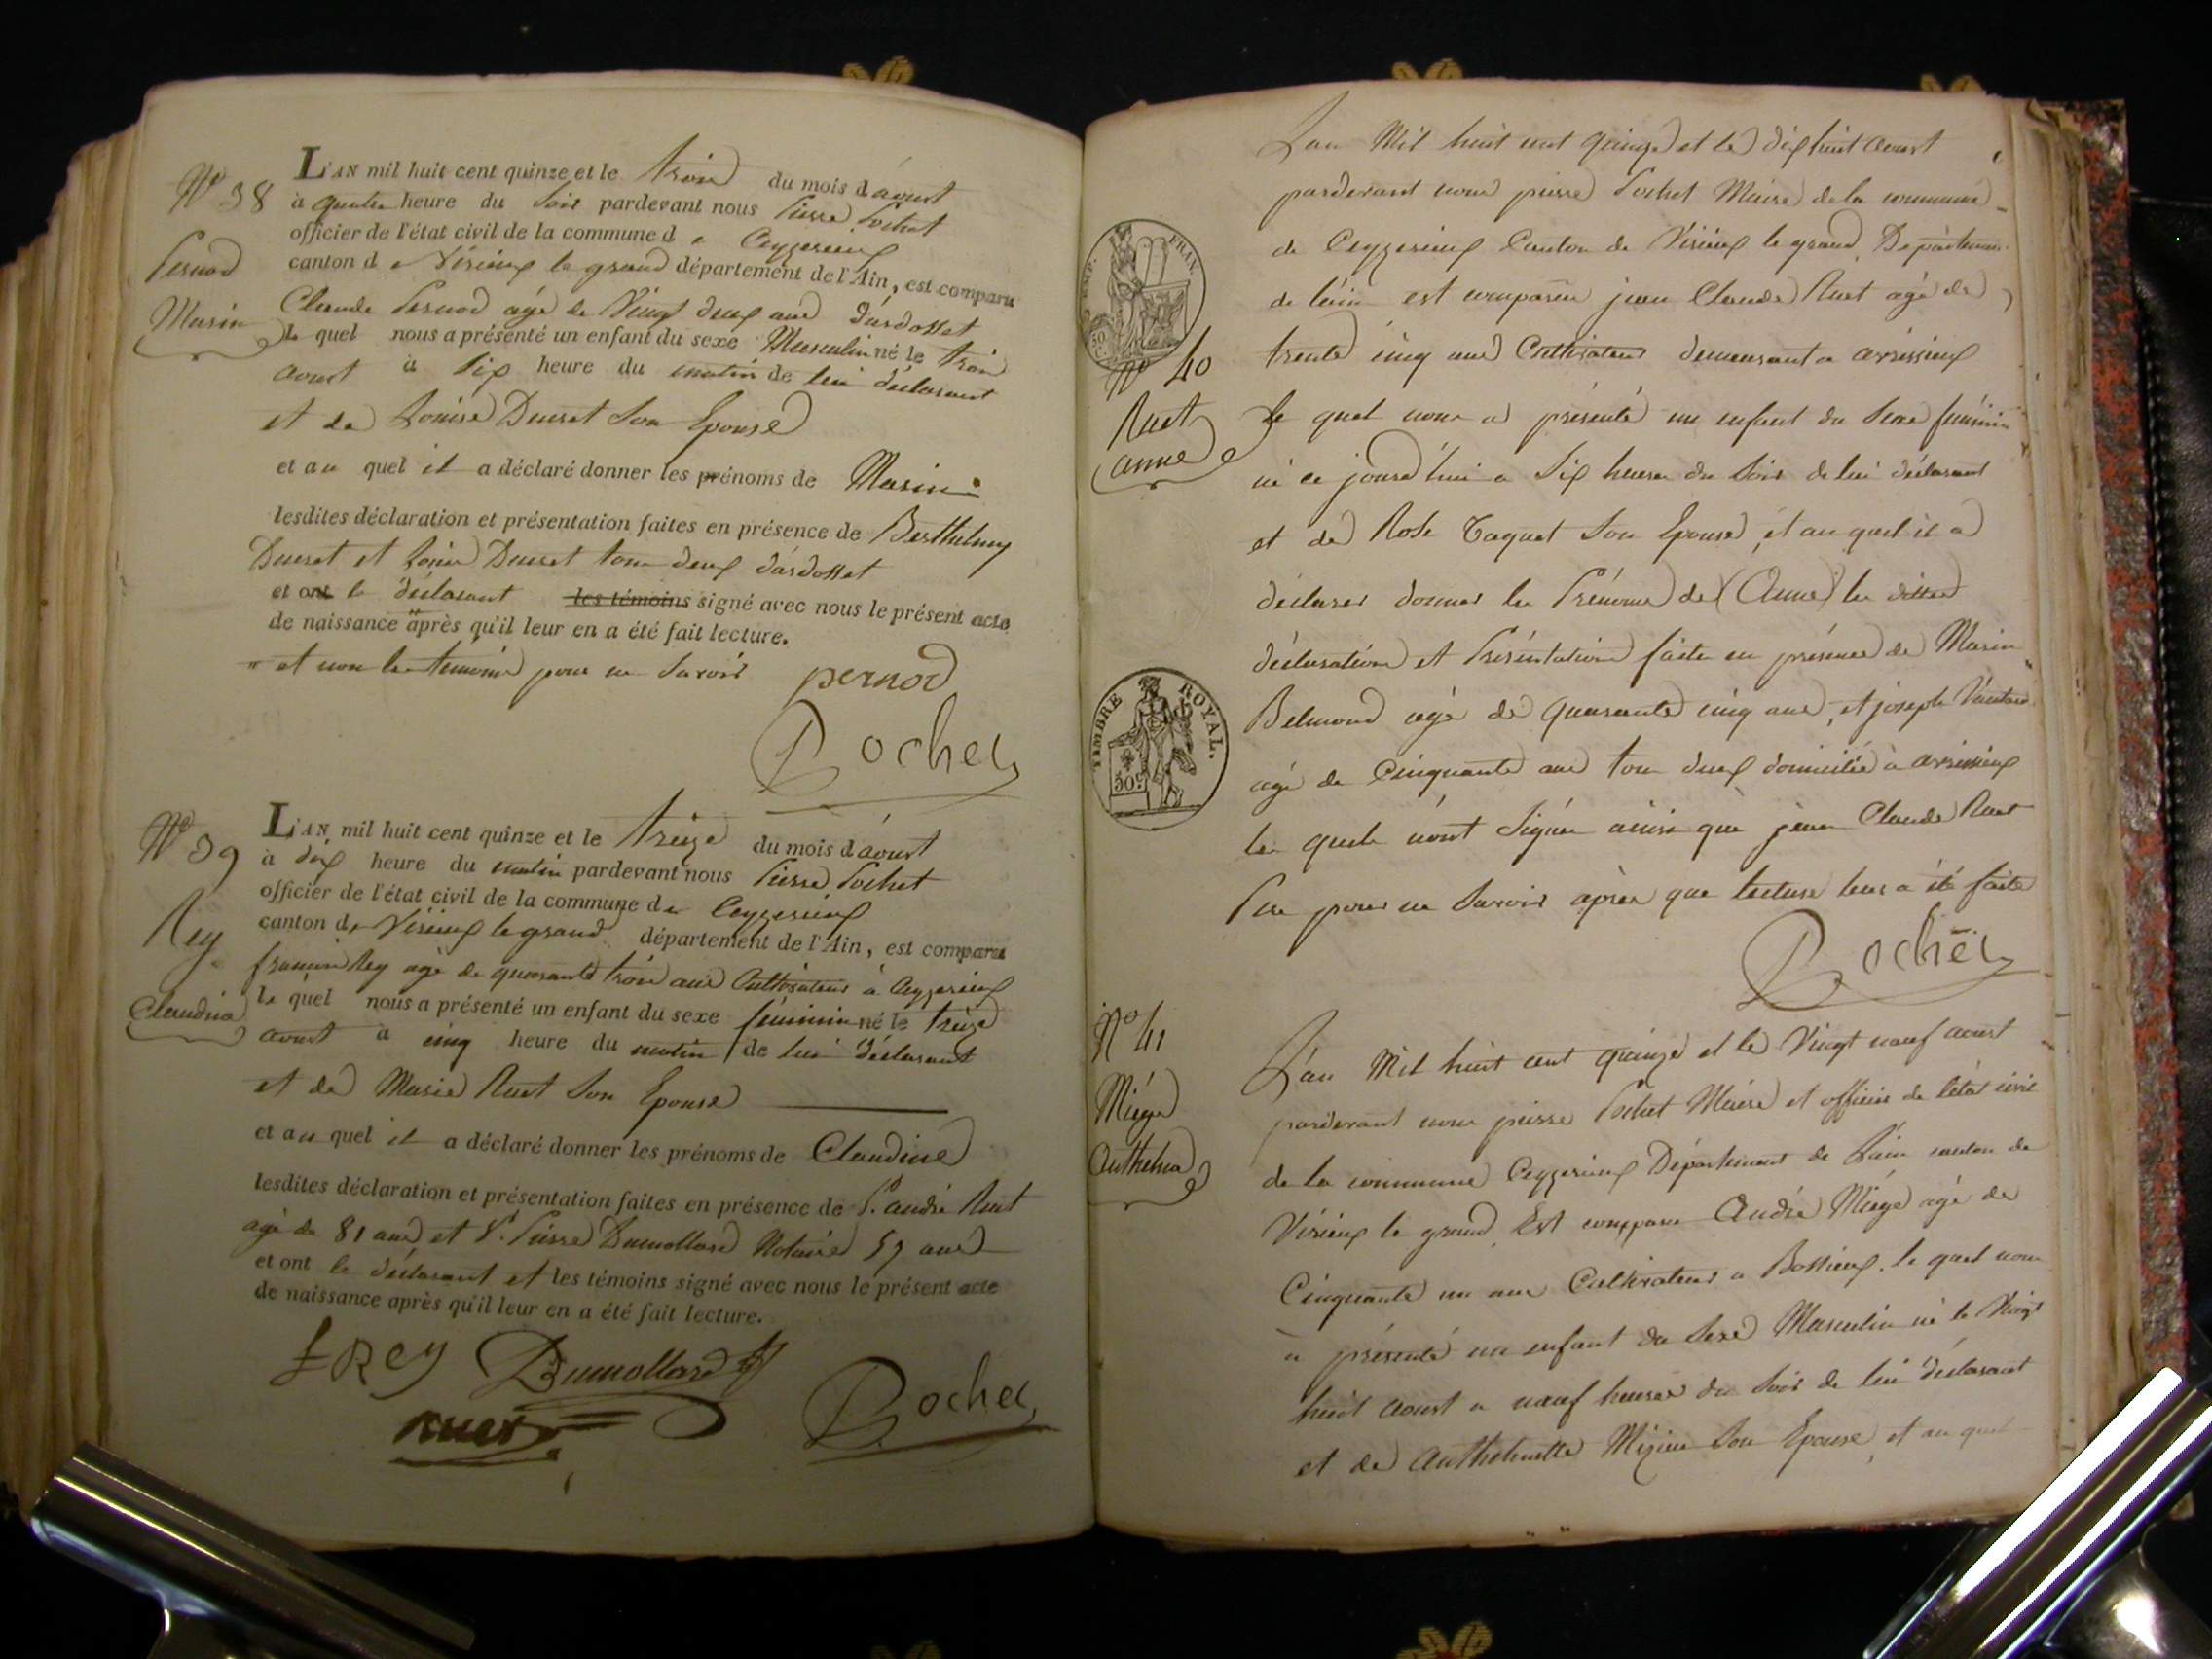 N° 38
Pernod
Marin
L'AN mil huit cent quinze et le trois du mois d'aoust
à quatre heure du soir pardevant nous Pierre Pochet
officier de l'état civil de la commune de Ceyzerieux
canton de Virieux le grand département de l'Ain, est comparu
Claude Pernod agé de vingt deux ans d'ardosset
le quel nous a présenté un enfant du sexe Masculin né le trois
aoust à six heure du matin de lui déclarant
et de Louise Ducret son Epouse
et au quel il a déclaré donner les prénoms de Marin
lesdites déclaration et présentation faites en présence de Berthelmy
Ducret et Ducret tous deux d'ardosset
et ont le déclarant les témoins signé avec nous le présent acte
de naissance après qu'il leur en a été fait lecture.
" et non les temoins pour ne savoir
pernod
Pochet
N° 39
Rey
Claudine
L'AN mil huit cent quinze et le treize du mois d'aoust
à dix heure du matin pardevant nous Pierre Pochet
officier de l'état civil de la commune de Ceyzerieux
canton de Virieux le grand département de l'Ain, est comparu
françois Rey agé de quarante trois ans Cultivateur à Ceyzerieux
le quel nous a présenté un enfant du sexe féminin né le treize
aoust à cinq heure du matin de lui déclarant
et de Marie Ruet son Epouse
et au quel il a déclaré donner les prénoms de Claudine
lesdites déclaration et présentation faites en présence de S. andré Ruet
agé de 81 ans et S. Pierre Dumollard Notaire 57 ans
et ont le déclarant et les témoins signé avec nous le présent acte
de naissance après qu'il leur en a été fait lecture.
f Rey Dumollard
ruet
Pochet
L'an Mil huit cent quinze et le dix huit aoust
pardevant nous pierre Pochet Maire de la commune
de Ceyzerieux Canton de Virieux le grand Département
de l'ain est comparu jean Claude Ruet agé de
trente cinq ans Cultivateur demeurant a avrissieux
le quel nous a présenté un enfant du sexe féminin
né ce jourd'hui a six heures du soir de lui déclarant
et de Rose Taquet son Epouse, et au quel il a
déclarer donner les Prénoms de (Anne) les dittes
déclaration et Présentation faite en présence de Marin
Belmond agé de quarante cinq ans, et joseph
agé de Cinquante ans tous deux domicilié à avrissieux
les quels n'ont signé ainsi que jean Claude Ruet
Pere pour ne savoir après que lecture leur a été faite
Pochet
FRAN.
N° 40
Ruet
anne
TIMBRE ROYAL.
50c
N° 41
Miége
Anthelme
L'an Mil huit cent quinze et le Vingt neuf aoust
pardevant nous pierre Pochet Maire et officier de l'état civil
de la commune Ceyzerieux Département de L'ain canton de
Virieux le grand, Est comparu André Miége agé de
Cinquante un ans Cultivateur a Bossieux. le quel nous
a présenté un enfant du sexe Masculin né le Vingt
huit aoust a neuf heures du soir de lui déclarant
et de Anthelmette son Epouse, et au quel